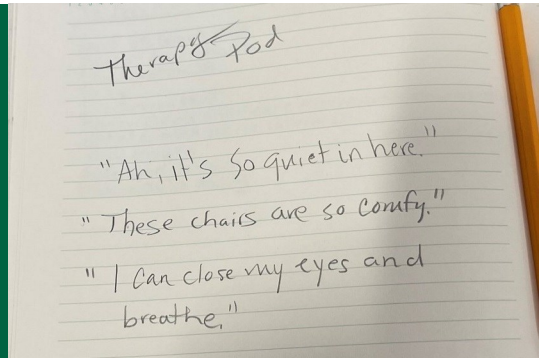 Therapy Pod
"Ah, it's so quiet in here."
"These chairs are so comfy."
"I can close my eyes and
breathe."